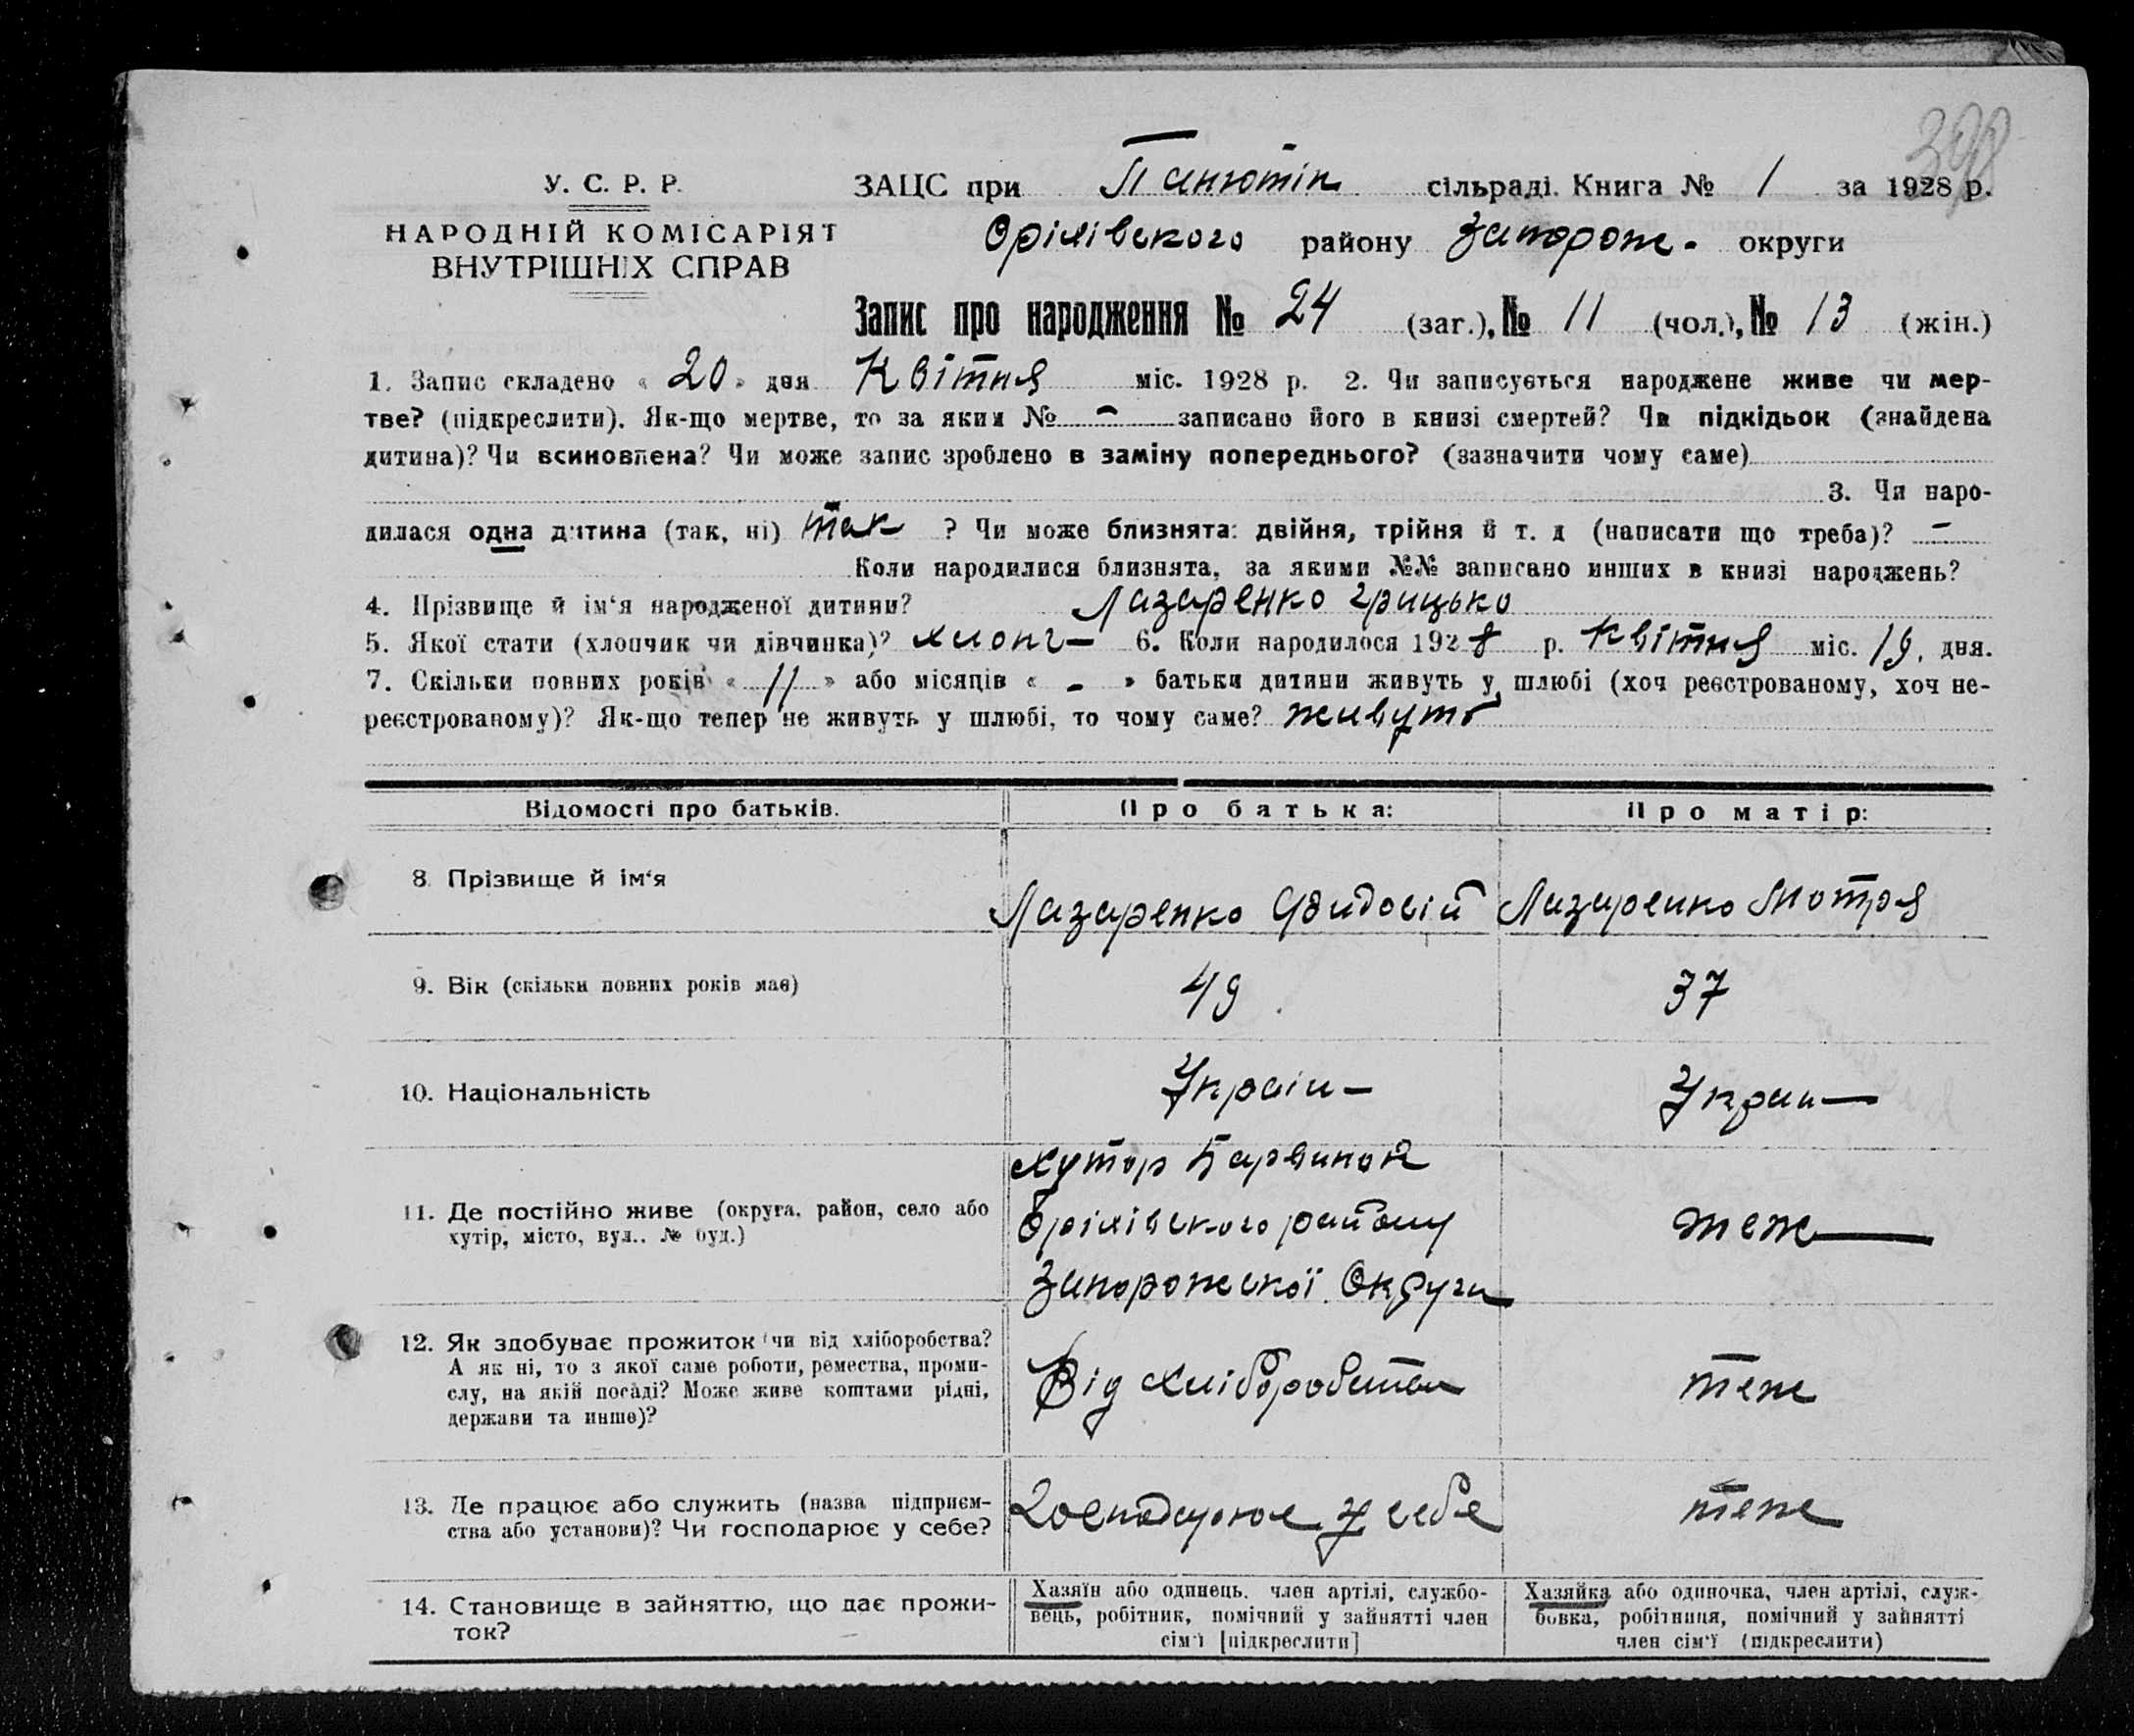 398
У. С. Р. Р.
НАРОДНІЙ КОМІСАРІЯТ
ВНУТРІШНІХ СПРАВ
ЗАЦС при Панютін сільраді. Книга № 1 за 1928 р.
Оріхівського району Запорож. округи
Запис про народження № 24 (заг.), № 11 (чол.), № 13 (жін.)
1. Запис складено « 20 » дня Квітня міс. 1928 р. 2. Чи записується народжене живе чи мер-
тве? (підкреслити). Як-що мертве, то за яким № - записано його в книзі смертей? Чи підкідьок (знайдена
дитина)? Чи всиновлена? Чи може запис зроблено в заміну попереднього? (зазначити чому саме)
3. Чи наро-
дилася одна дитина (так, ні) так ? Чи може близнята: двійня, трійня й т. д (написати що треба)? -
Коли народилися близнята, за якими №№ записано инших в книзі народжень?
4. Прізвище й ім'я народженої дитини? Лазаренко Грицько
5. Якої стати (хлопчик чи дівчинка)? хлопч- 6. Коли народилося 1928 р. Квітня міс. 19. дня.
7. Скільки повних років « 11 » або місяців « - » батьки дитини живуть у шлюбі (хоч реєстрованому, хоч не-
реєстрованому)? Як-що тепер не живуть у шлюбі, то чому саме? живуть
Відомості про батьків. Про батька: Про матір:
8. Прізвище й ім'я Лазаренко Лазаренко Мотря
9. Вік (скільки повних років має) 49 37
10. Національність Україн- Украи-
11. Де постійно живе (округа, район, село або
хутір, місто, вул.. № буд.)
Хутор Барвинок
Оріхівського району
Запорожської Округи
теж
12. Як здобуває прожиток (чи від хліборобства?
А як ні, то з якої саме роботи, ремества, проми-
слу, на якій посаді? Може живе коштами рідні,
держави та инше)?
Від хліборобства
теж
13. Де працює або служить (назва підприєм-
ства або установи)? Чи господарює у себе?
Господарює у себе
теж
14. Становище в зайняттю, що дає прожи-
ток?
Хазяїн або одинець. член артілі, службо-
вець, робітник, помічний у зайнятті член
сім'ї [підкреслити]
Хазяйка або одиночка, член артілі, служ-
бовка, робітниця, помічний у зайнятті
член сім'ї (підкреслити)